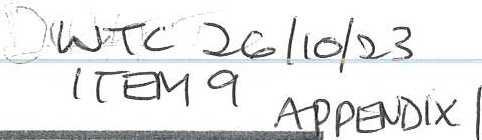 WTC 26/10/23
ITEM 9
APPENDIX 1